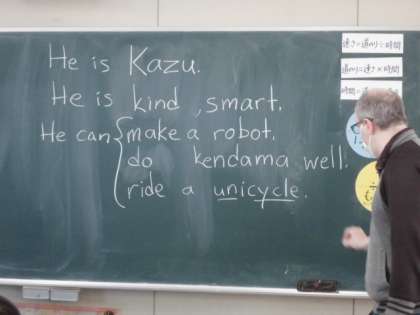 He is Kazu.
He is kind, smart.
He can { make a robot.
do kendama well.
ride a unicycle.
速さ=道のり÷時間
道のり=速さ×時間